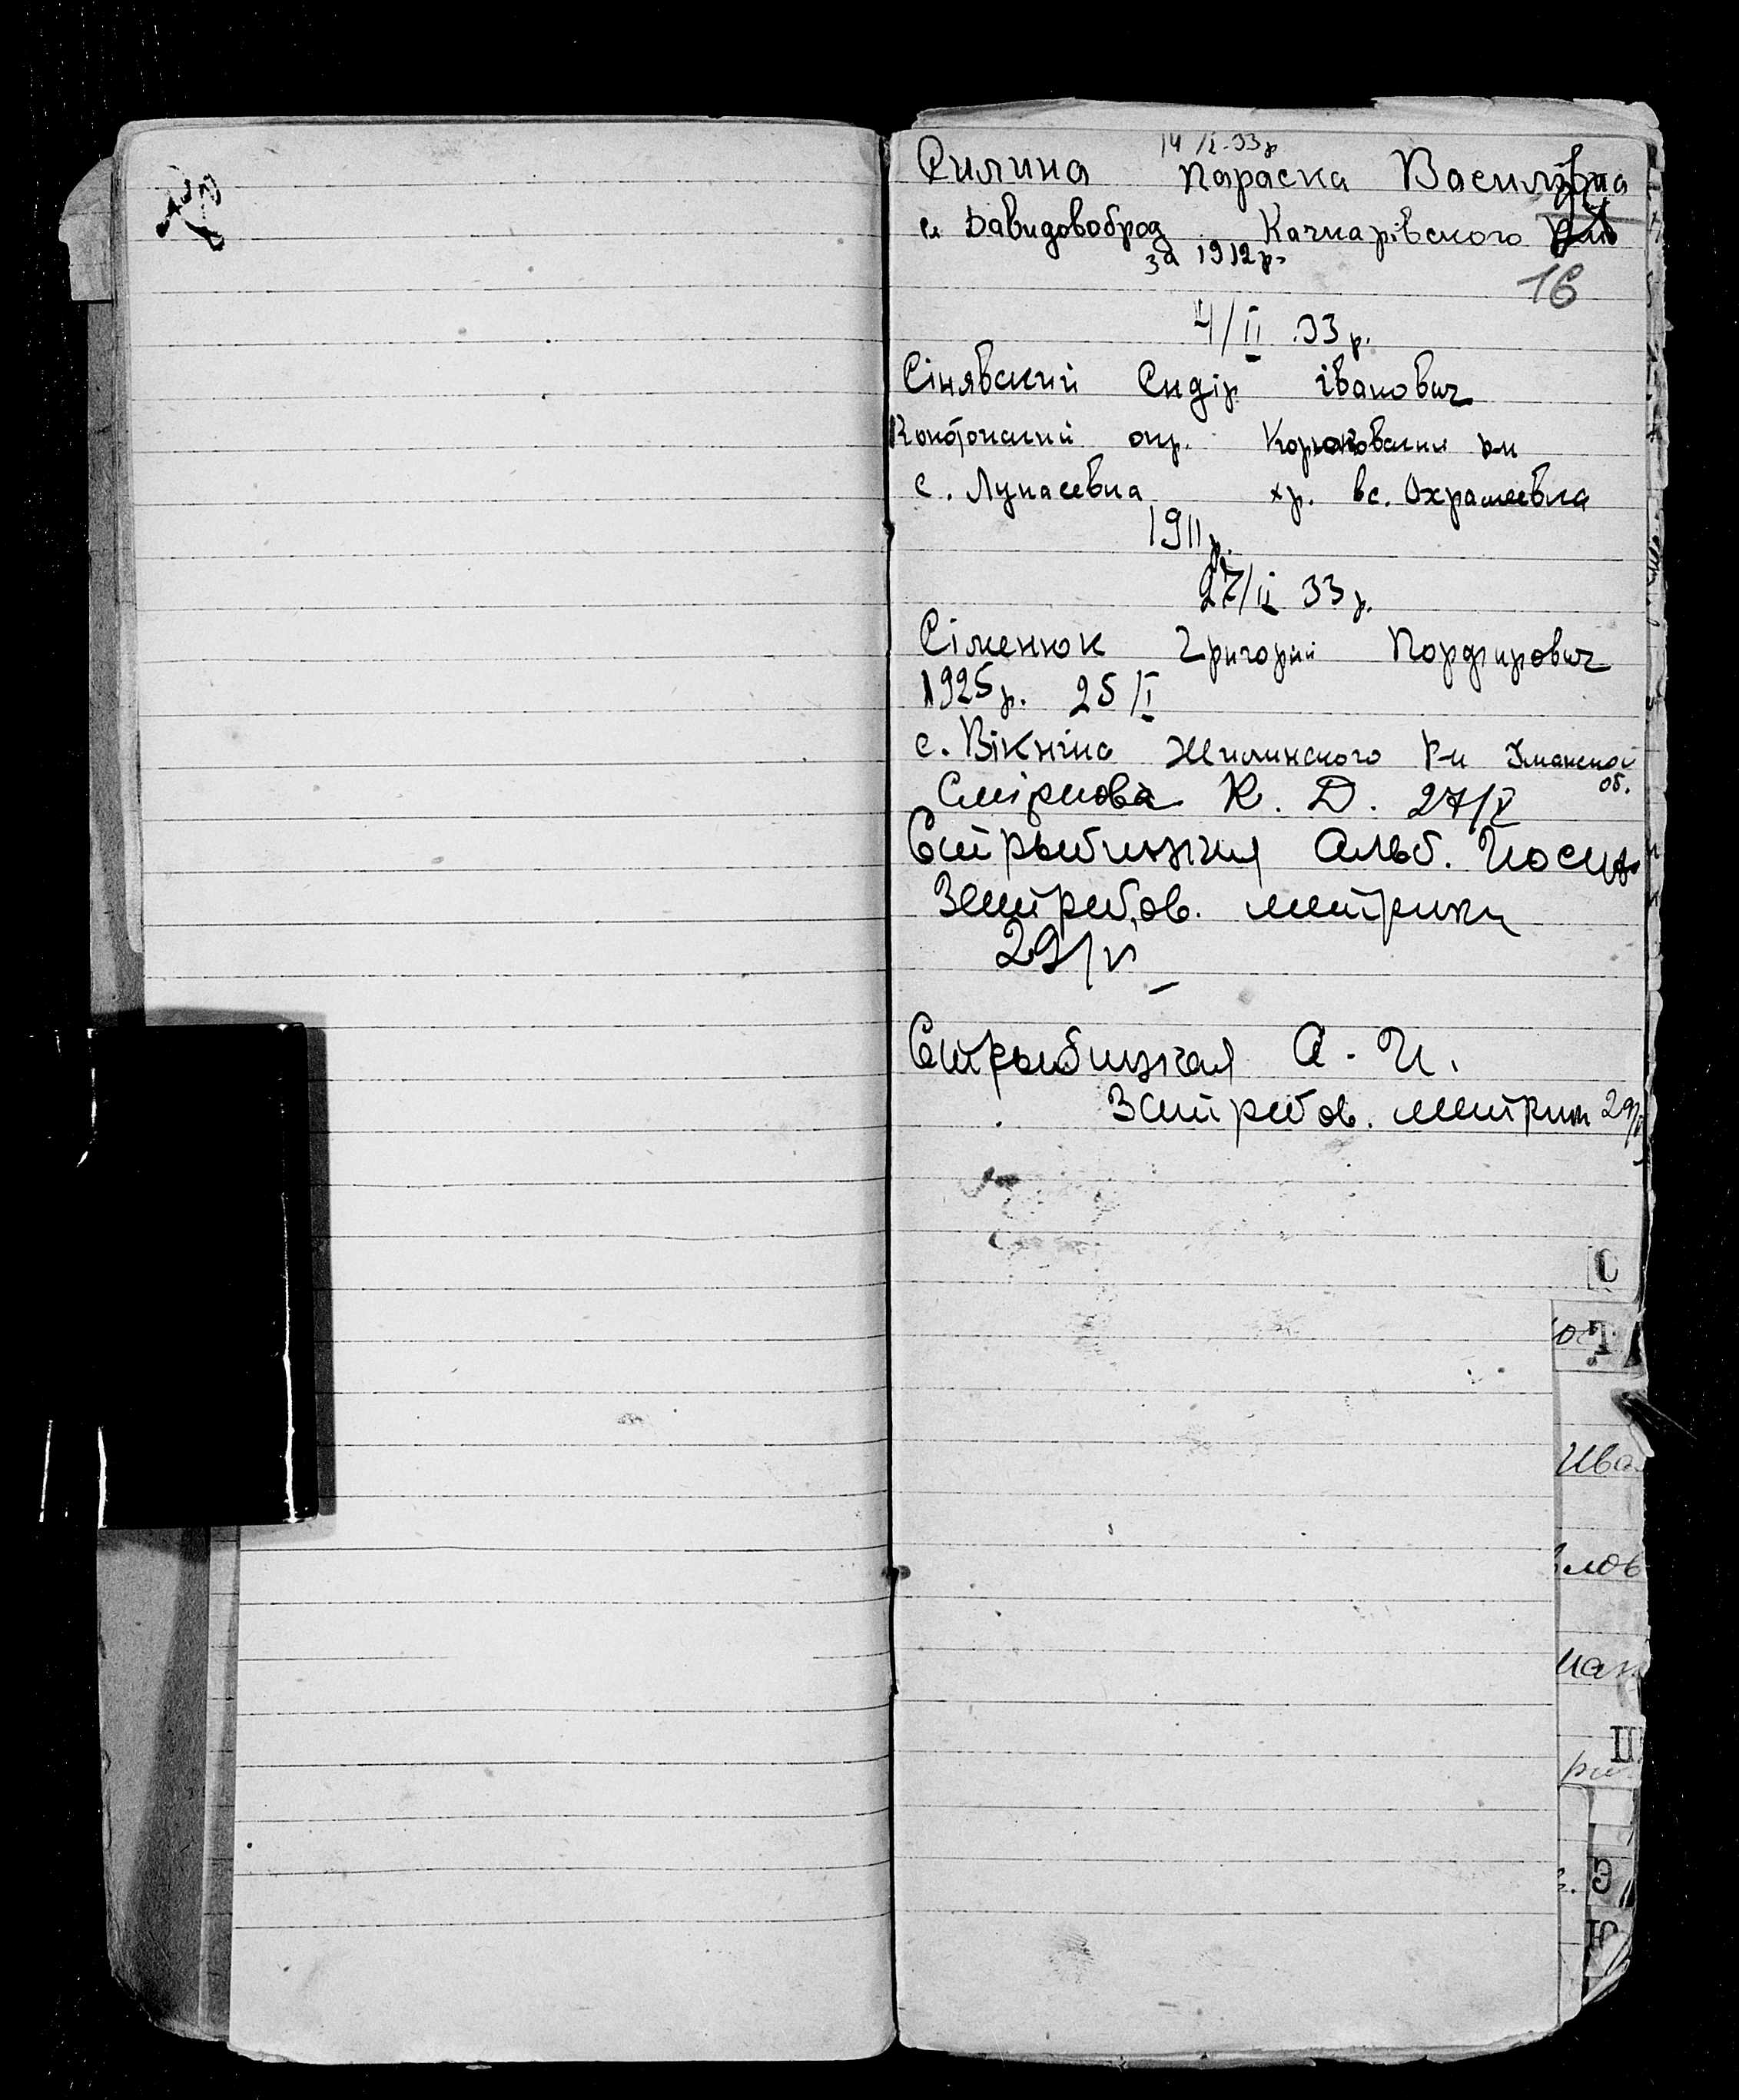 14/I-33р
Силина Параска Василівна
с Давидовоброд Качкарівского
за 1912р.
16
4/II .33 р.
Сінявский Сидір Іванович
Конотопский окр. Корюковский р-н
с. Лупасевка хр. вс. Охрамеевка
1911 р.
27/II 33 р.
Сіменюк Григорий Порфирович
1925 р. 25/I
с. Вікніна р-н Уманской
об.
Смірнова К. Д. 27/V
Стрыбицкая Альб. Иосиф
Зстребов. метрики
29/V
Стрыбицкая А. И.
Зстребов. метрик 29/V
С
Т
Ива
лов
ман
Ш
Э
Ю